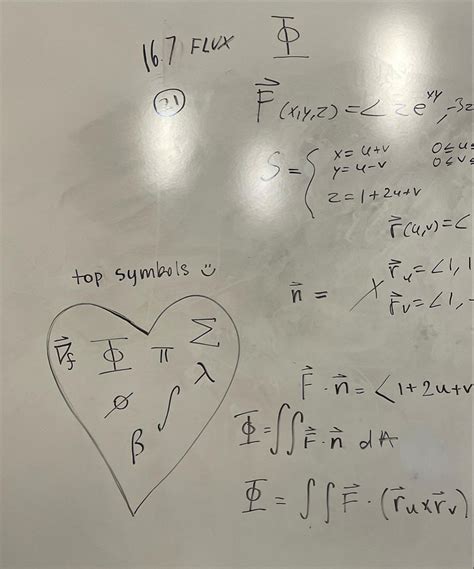 16.7 FLUX Φ
21
F⃗(x,y,z) = < ze^xy, -3z
S = { x = u+v 0≤u≤
y = u-v 0≤v≤
z = 1+2u+v
r⃗(u,v) = <
top symbols ☺
n⃗ = × r⃗u = <1, 1
r⃗v = <1, -
∇⃗f Φ π Σ
ø ∫ λ
β
F⃗ · n⃗ = <1+2u+v
Φ = ∬ F⃗ · n⃗ dA
Φ = ∫∫ F⃗ · (r⃗u × r⃗v)